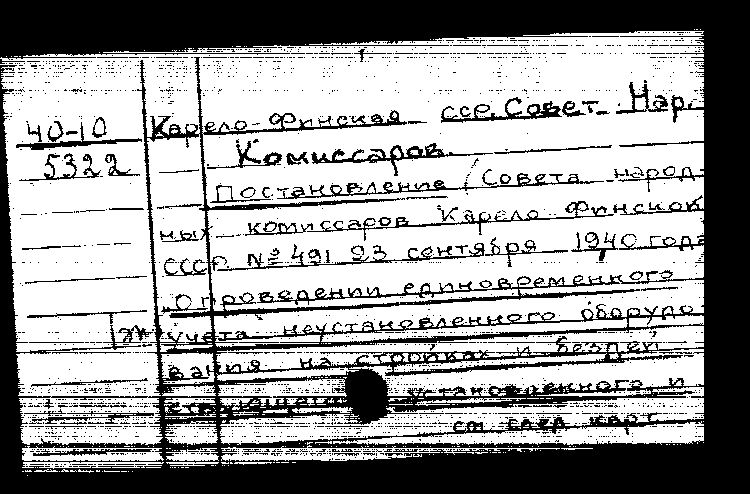 40-10 Карело-Финская ССР. Совет Нар.
5322 Комиссаров.
Постановление Совета народ-
ных комиссаров Карело Финской
СССР № 491 23 сентября 1940 года
"О проведении единовременного
учета неустановленного оборудо-
вания на стройках и бездей
ствующего установленного и
см след карт